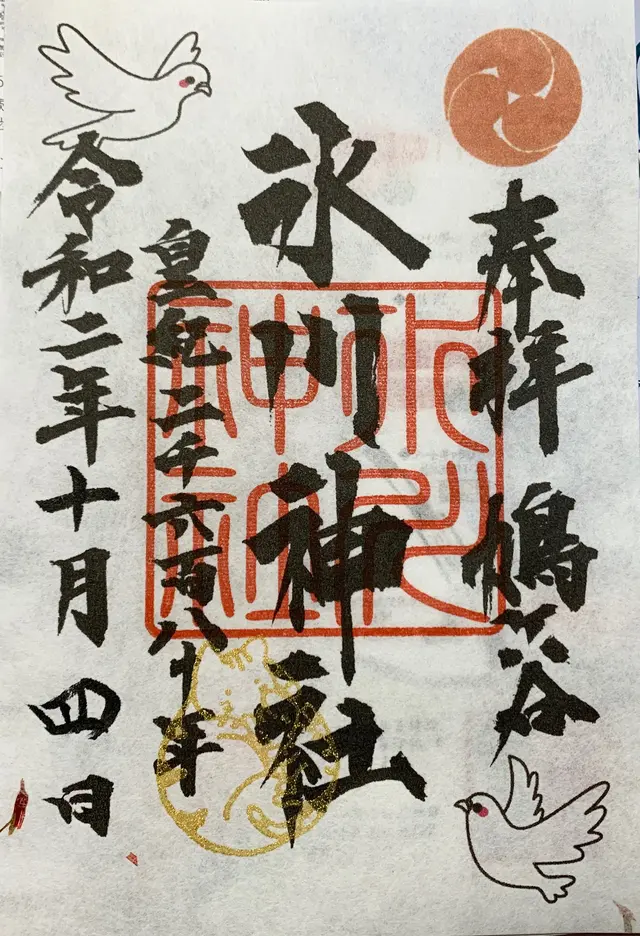 奉拝 鳩谷
氷川神社
皇紀二千六百八十年
令和二年十月四日
氷川
神社